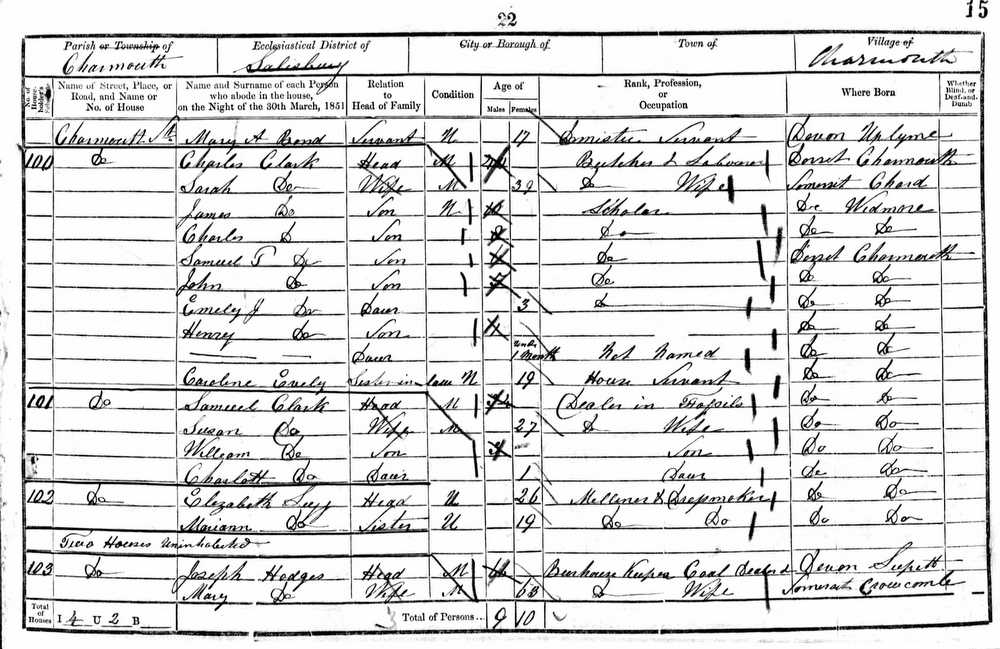 22
15
Parish or Township of Ecclesiastical District of City or Borough of Town of Village of
Charmouth Salisbury Charmouth
No. of House-holder's Schedule Name of Street, Place, or Road, and Name or No. of House Name and Surname of each Person who abode in the house, on the Night of the 30th March, 1851 Relation to Head of Family Condition Age of Males Females Rank, Profession, or Occupation Where Born Whether Blind, or Deaf-and-Dumb
Charmouth St. Mary A Bond Servant U 17 Domistic Servant Devon Uplyme
100 Do Charles Clark Head M Butcher & Labourer Dorset Charmouth
Sarah Do Wife M 39 Do Wife Somerset Chard
James Do Son U 10 Scholar Do Widmore
Charles D Son Do Do Do
Samuel T Do Son Do Dorset Charmouth
John Do Son Do Do Do
Emely J Do Daur 3 Do Do Do
Henry Do Son Do Do
Daur under 1 Month Not Named Do Do
Caroline Evely Sister in law U 19 House Servant Do Do
101 Do Samuel Clark Head M Dealer in Fossils Do Do
Susan Do Wife M 27 Do Wife Do Do
William Do Son Son Do Do
Charlott Do Daur 1 Daur Do Do
102 Do Elizabeth Head U 26 Milliner & Dressmaker Do Do
Mariann Do Sister U 19 Do Do Do Do
Two Houses Uninhabited
103 Do Joseph Hodges Head M Beerhouse Keeper Coal Dealer Devon
Mary Do Wife M 63 Do Wife Somerset Crowcombe
Total of Houses I 4 U 2 B 3 Total of Persons... 9 10